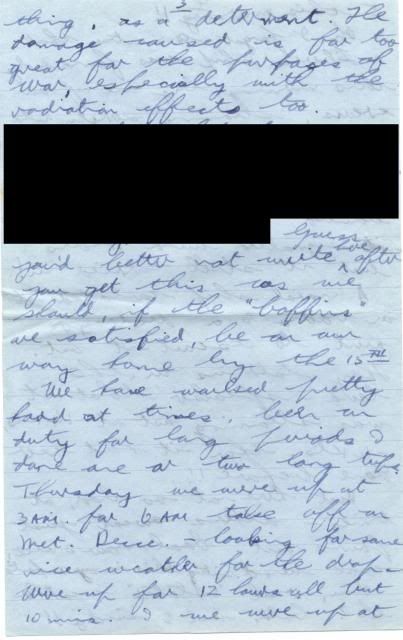 3
thing, as a deterrent. The
damage caused is far too
great for the purposes of
war, especially with the
radiation effects too.
Guess
you'd better not write love after
you get this as we
should, if the "boffins"
are satisfied, be on our
way home by the 15TH
We have worked pretty
hard at times, been on
duty for long periods &
done one or two long trips.
Thursday we were up at
3 AM. for 6 AM take off on
Met. Recce. - looking for some
nice weather for the drop.
Were up for 12 hours all but
10 mins. & we were up at